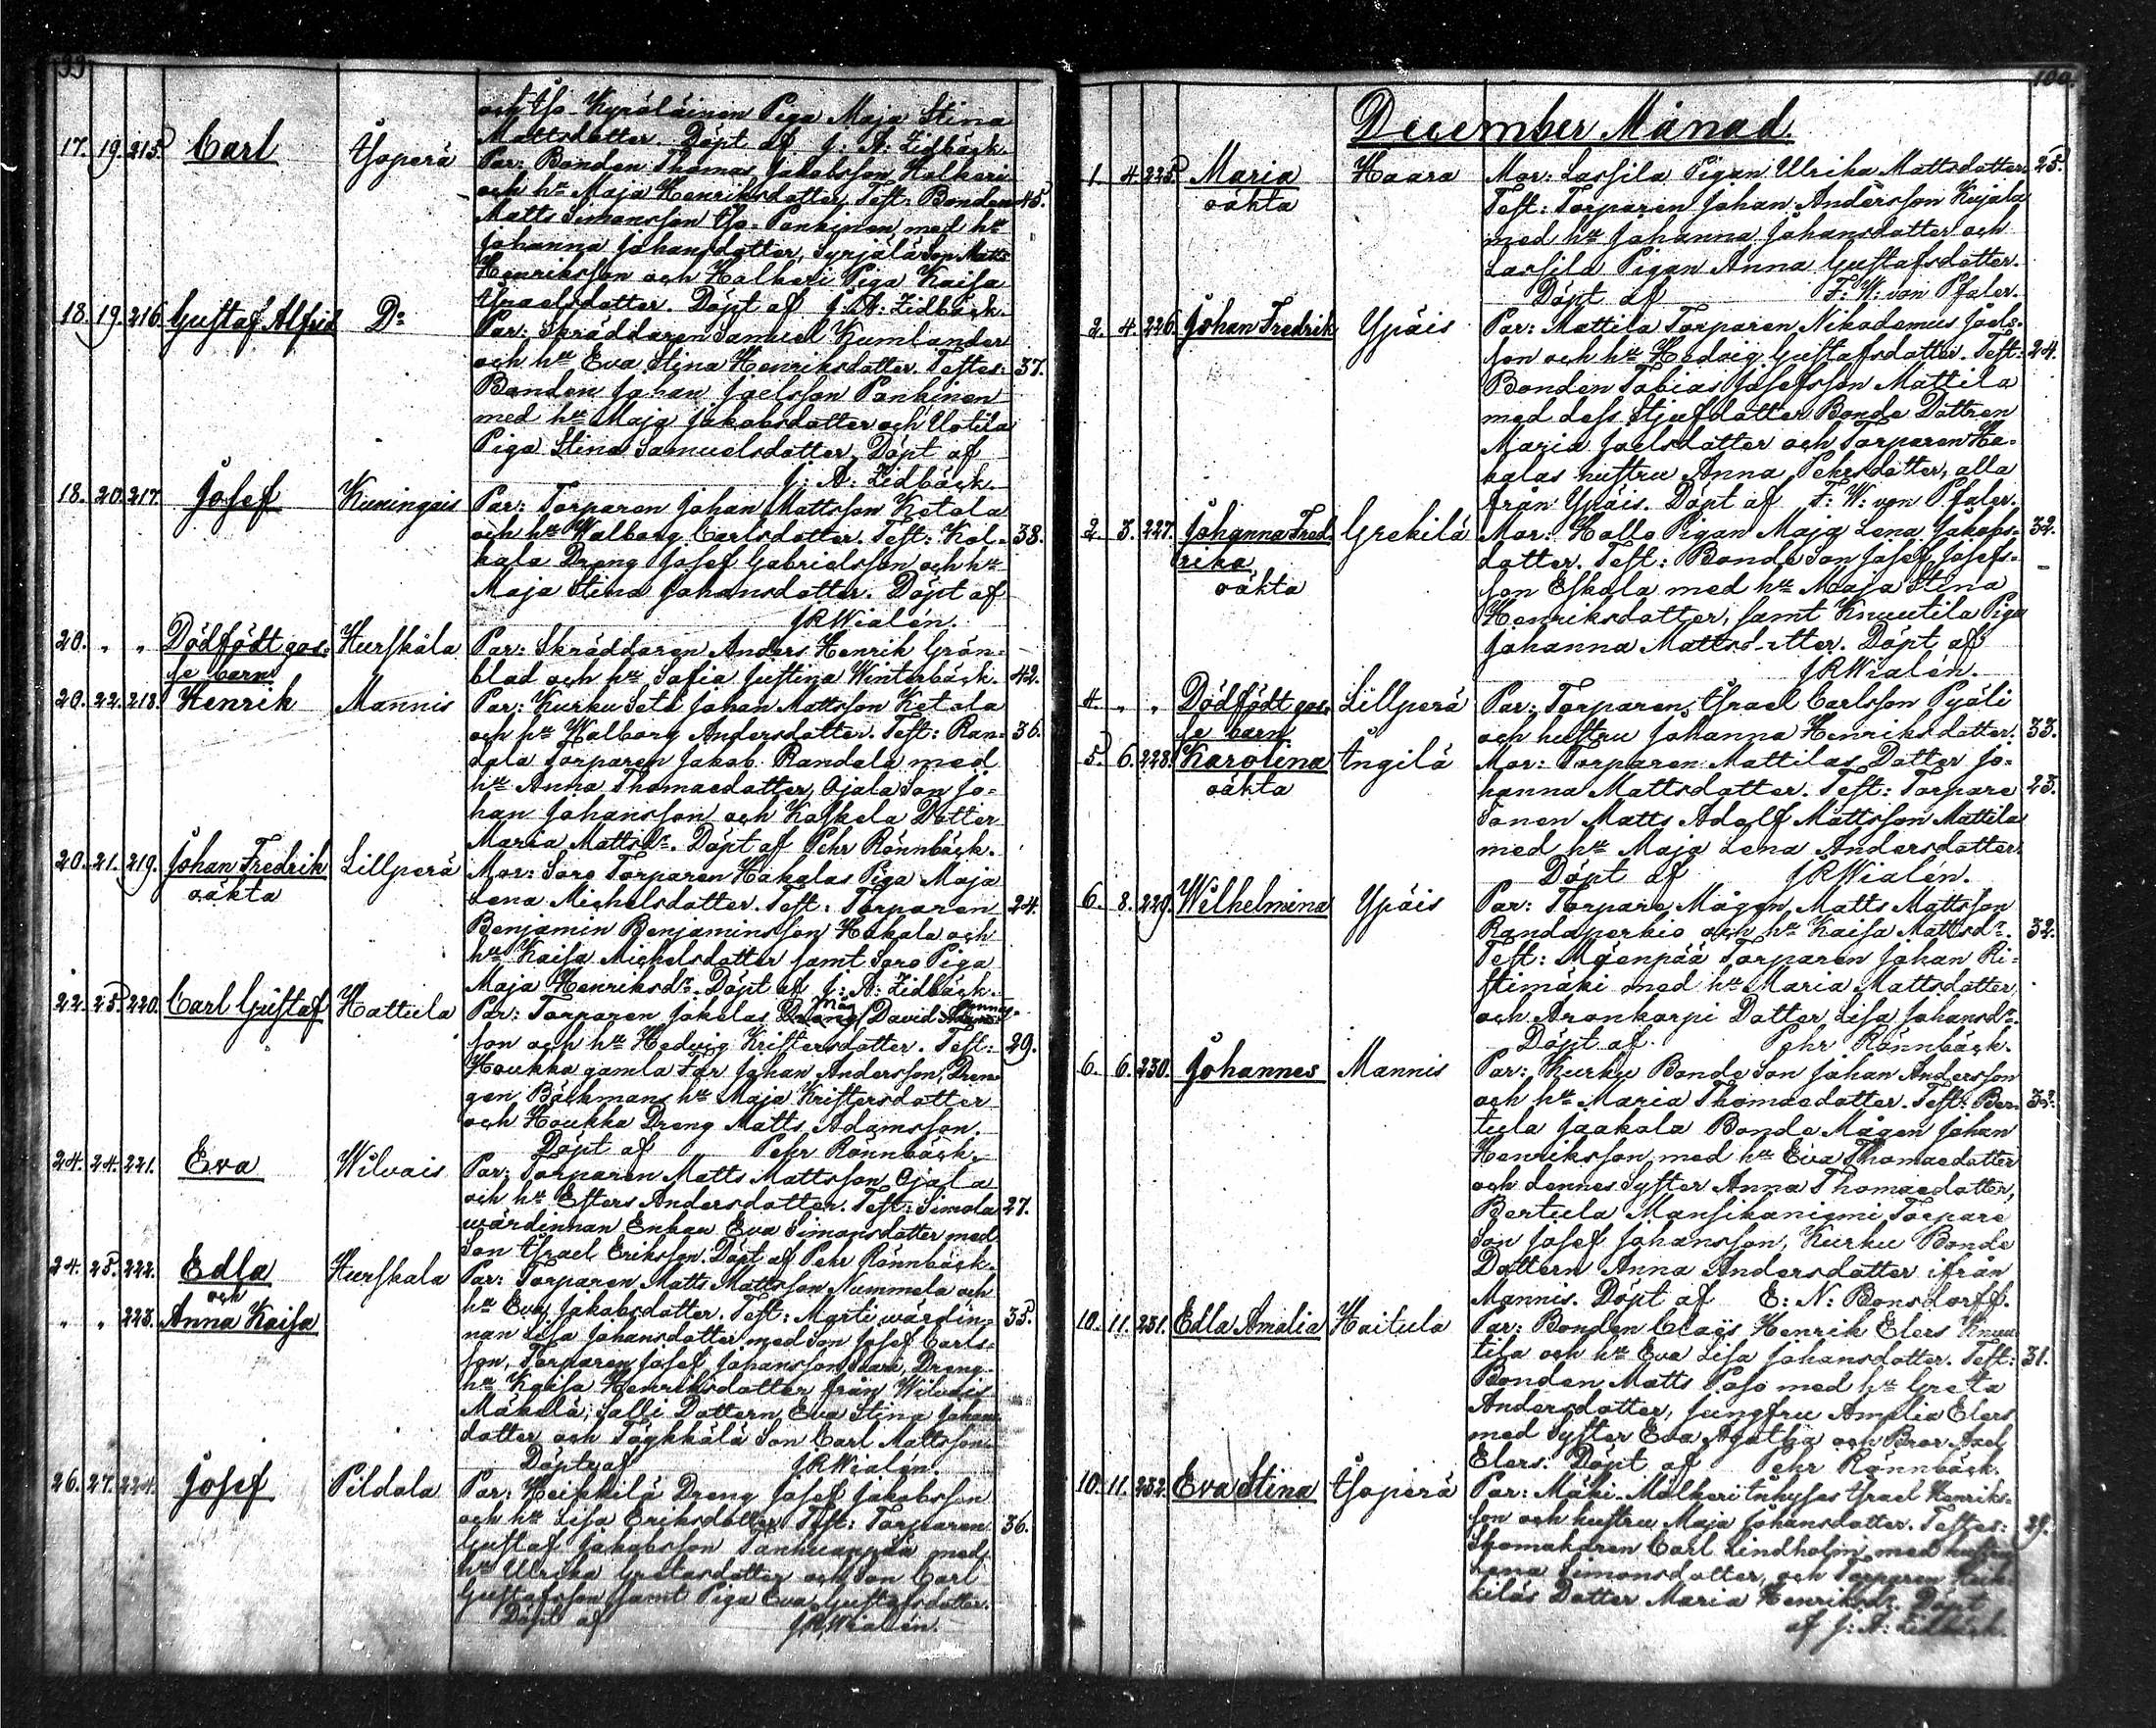 99.
och Iso-Kyröläinen Piga Maja Stina
Mattsdotter. Döpt af J: A: Lidbäck.
17. 19. 215. Carl Isoperä Par: Bonden Thomas Jakobsson Halkeri
och hu Maja Henriksdotter. Test: Bonden 45.
Matts Simonsson Iso-Pankinen med hu
Johanna Johansdotter, Syrjälä Son Matts
Henriksson och Halkeri Piga Kaisa
Israelsdotter. Döpt af J: A: Lidbäck.
18. 19. 216. Gustaf Alfrid Do Par: Skräddaren Samuel Kumlander
och hu Eva Stina Henriksdotter. Testes: 37.
Bonden Johan Joelsson Pankinen
med hu Maja Jakobsdotter och Uotila
Piga Stina Samuelsdotter. Döpt af
J: A: Lidbäck.
18. 20. 217. Josef Kuningais Par: Torparen Johan Mattsson Ketola
och hu Walborg Carlsdotter. Test: Kol- 38.
kala Dreng Josef Gabrielsson och hu
Maja Stina Johansdotter. Döpt af
JRWialén.
20. " " Dödfödt gos- Hurskala Par: Skräddaren Anders Henrik Grön-
se barn blad och hu Sofia Justina Winterbäck. 42.
20. 22. 218. Henrik Mannis Par: Kurku Seta Johan Mattsson Ketola
och hu Walborg Andersdotter. Test: Ran- 36.
dala Torparen Jakob Randala med
hu Anna Thomaedotter, Ojala Son Jo-
han Johansson och Kaskela Dotter
Maria Mattsdr. Döpt af Pehr Rönnbäck.
20. 21. 219. Johan Fredrik Lillperä Mor: Soro Torparen Hakalas Piga Maja
oäkta Lena Michelsdotter. Test: Torparen 24.
Benjamin Benjaminsson Hakala och
hu Kaisa Michelsdotter samt Soro Piga
Maja Henriksdr. Döpt af J: A: Lidbäck.
22. 25. 220. Carl Gustaf Hattula Par: Torparen Jakolas Dreng Måg David
son och hu Hedvig Kristersdotter. Test: 29.
Houkka gamla Far Johan Andersson, Dren-
gen Bäckmans hu Maja Kristersdotter
och Houkka Dreng Matts Adamsson.
Döpt af Pehr Rönnbäck.
24. 24. 221. Eva Wilvais Par: Torparen Matts Mattsson Ojala
och hu Esters Andersdotter. Test: Simola 27.
wärdinnan Enkan Eva Simonsdotter med
Son Israel Eriksson. Döpt af Pehr Rönnbäck.
24. 25. 222. Edla Hurskala Par: Torparen Matts Mattsson Nummela och
och hu Eva Jakobsdotter. Test: Marti wärdin- 35.
" " 223. Anna Kaisa nan Lisa Johansdotter med Son Josef Carls-
son, Torparen Josef Johansson Saari, Dreng
hu Kaisa Henriksdotter från Wilvais
Mäkelä, Salli Dottern Eva Stina Johans
dotter och Töykkälä Son Carl Mattsson.
Döpte af JRWialén.
26. 27. 224. Josef Pildola Par: Heikkilä Dreng Josef Jakobsson
och hu Lisa Eriksdotter Test: Torparen 36.
Gustaf Jakobsson Tanhuanpää med
hu Ulrika Gretasdotter och Son Carl
Gustafsson samt Piga Eva Gustafsdotter.
Döpt af JRWialén.
100.
December Månad.
1. 4. 225. Maria Haara Mor: Lassila Pigan Ulrika Mattsdotter 25.
oäkta Test: Torparen Johan Andersson Kujala
med hu Johanna Johansdotter och
Lassila Pigan Anna Gustafsdotter.
Döpt af F: W: von Pfaler.
2. 4. 226. Johan Fredrik Ypäis Par: Mattila Torparen Nikodemus Joels-
son och hu Hedvig Gustafsdotter. Test: 24.
Bonden Tobias Josefsson Mattila
med dess Stjufdotter Bonde Dottren
Maria Joelsdotter och Torparen Ha-
kalas hustru Anna Pehrsdotter, alla
från Ypäis. Döpt af F: W: von Pfaler.
2. 3. 227. Johanna Fred Grekilä Mor: Hallo Pigan Maja Lena Jakobs- 32.
rika dotter. Test: Bonde Son Josef Josefs-
oäkta son Eskola med hu Maja Stina
Henriksdotter, samt Knuutila Piga
Johanna Mattsdotter. Döpt af
JRWialén.
4. " " Dödfödt gos- Lillperä Par: Torparen Israel Carlsson Pyöli
se barn och hustru Johanna Henriksdotter. 33.
5. 6. 228. Karolina Ingilä Mor: Torparen Mattilas Dotter Jo-
oäkta hanna Mattsdotter. Test: Torpare 23.
Sonen Matts Adolf Mattsson Mattila
med hu Maja Lena Andersdotter.
Döpt af JRWialén.
6. 8. 229. Wilhelmina Ypäis Par: Torpare Mågen Matts Mattsson
Randaperkio och hu Kaisa Mattsdr. 32.
Test: Mäenpää Torparen Johan Ri-
stimäki med hu Maria Mattsdotter
och Aronkorpi Dotter Lisa Johansdr.
Döpt af Pehr Rönnbäck.
6. 6. 230. Johannes Mannis Par: Kurku Bonde Son Johan Andersson
och hu Maria Thomaedotter. Test: Ber- 32.
tula Jaakola Bonde Mågen Johan
Henriksson med hu Eva Thomaedotter
och dennes Syster Anna Thomaedotter,
Bertula Mansikaniemi Torpare
Son Josef Johansson, Kurku Bonde
Dottern Anna Andersdotter ifrån
Mannis. Döpt af E: N: Bonsdorff.
10. 11. 231. Edla Amalia Haitula Par: Bonden Claës Henrik Elers Knuu
tila och hu Eva Lisa Johansdotter. Test: 31.
Bonden Matts Paso med hu Greta
Andersdotter, Jungfru Amalia Elers
med Syster Eva Agatha och Bror Axel
Elers. Döpt af Pehr Rönnbäck.
10. 11. 232. Eva Stina Isoperä Par: Mäki-Mälkeri Inhyses Israel Henriks-
son och hustru Maja Johansdotter. Testes: 29.
Skomakaren Carl Lindholm med hustru
Lena Simonsdotter, och Torparen Heik-
kiläs Dotter Maria Henriksdr. Döpt
af J: A: Lidbäck.